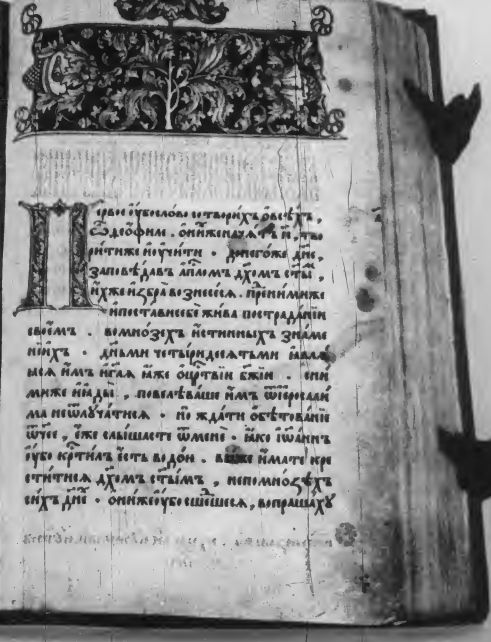 Первое ѹ҆бо сло́во сотвори́хъ ѽ всѣ́хъ ,
ѽ део҆́филе . ѡ҆ ни́хже начаѧ́тъ і҆с , тво
ри́ти же и҆ ѹ҆чи́ти . до него́же дн҃е ,
заповѣ́давъ а҆пⷭ҇ломъ дх҃омъ ст҃ы́ ,
и҆́хже и҆збра̀ вознесе́сѧ . пред ни́миже
и҆ поста́ви себѐ жи́ва по страда́нїи
свое́мъ . во мно́зехъ и҆́стинныхъ зна́ме
нїихъ . дньмѝ четы́ридесѧтьми ꙗ҆влѧ́
ѧсѧ и҆̀мъ и҆ г҃лѧ ꙗ҆̀же ѡ҆ црⷭ҇твїи бж҃їи . с ни
ми́же и҆ ꙗ҆ды̀ , повелѣва́ше и҆̀мъ ѿ і҆ерⷭ҇осали́
ма не ѿлѹча́тисѧ . но̀ жда́ти ѡ҆бѣтова́нїе
ѿчее , е҆́же слы́шасте ѿ менѐ . ꙗ҆́ко і҆ѡа́ннъ
ѹ҆́бо крⷭ҇ти́лъ е҆́сть водо́ю . вы́ же и҆́мате кре
сти́тисѧ дх҃омъ ст҃ы́мъ , не по мно́зѣхъ
си́хъ дн҃е . ѡ҆ни́же ѹ҆́бо сше́дшесѧ , вопраша́хѹ